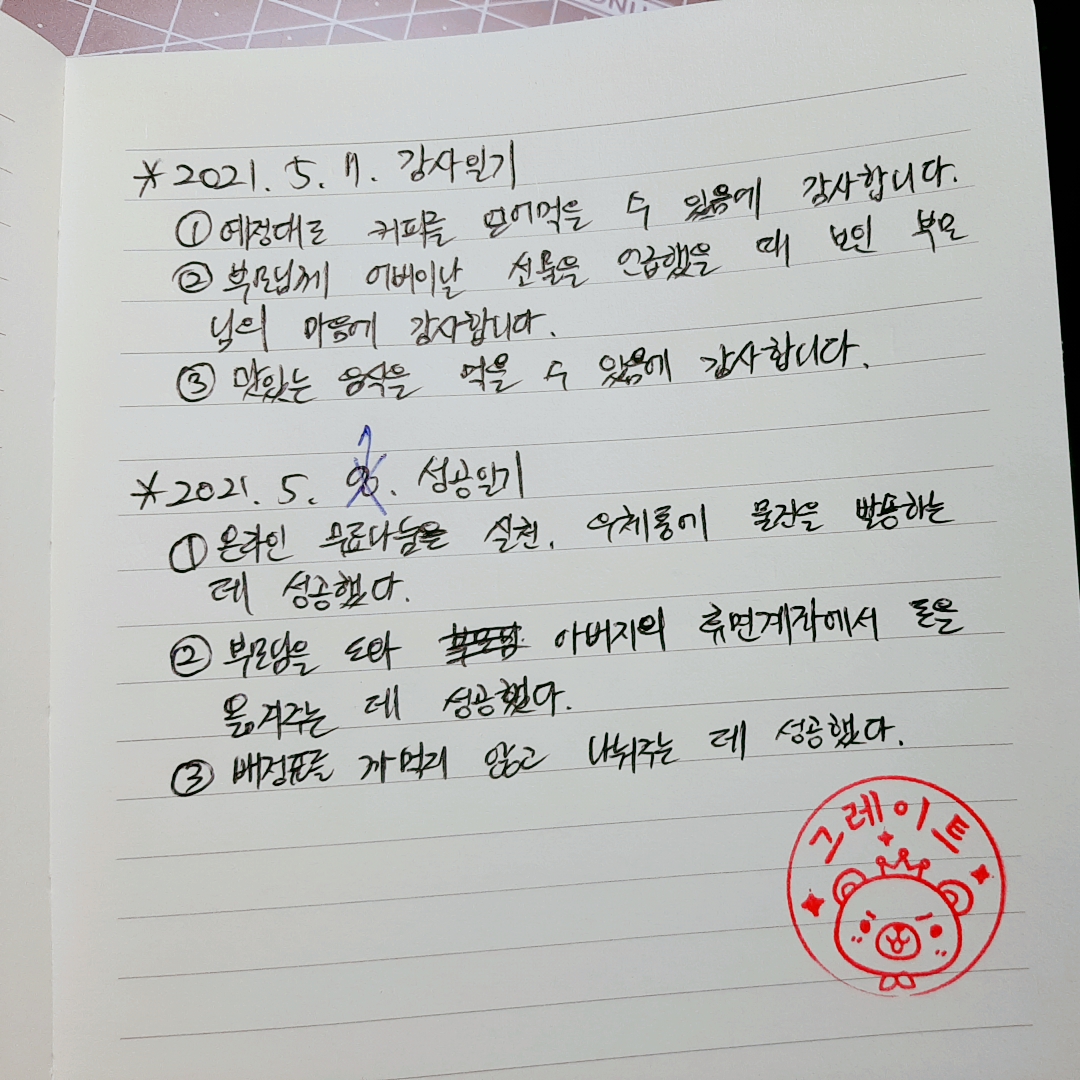 *2021. 5. 7. 감사일기
① 예정대로 커피를 얻어먹을 수 있음에 감사합니다.
② 부모님께 어버이날 선물을 언급했을 때 보인 부모
님의 마음에 감사합니다.
③ 맛있는 음식을 먹을 수 있음에 감사합니다.
*2021. 5. 7. 성공일기
① 온라인 무료나눔을 실천, 우체통에 물건을 발송하는
데 성공했다.
② 부모님을 도와 아버지의 휴면계좌에서 돈을
옮겨주는 데 성공했다.
③ 배정표를 까먹지 않고 나눠주는 데 성공했다.
그레이트